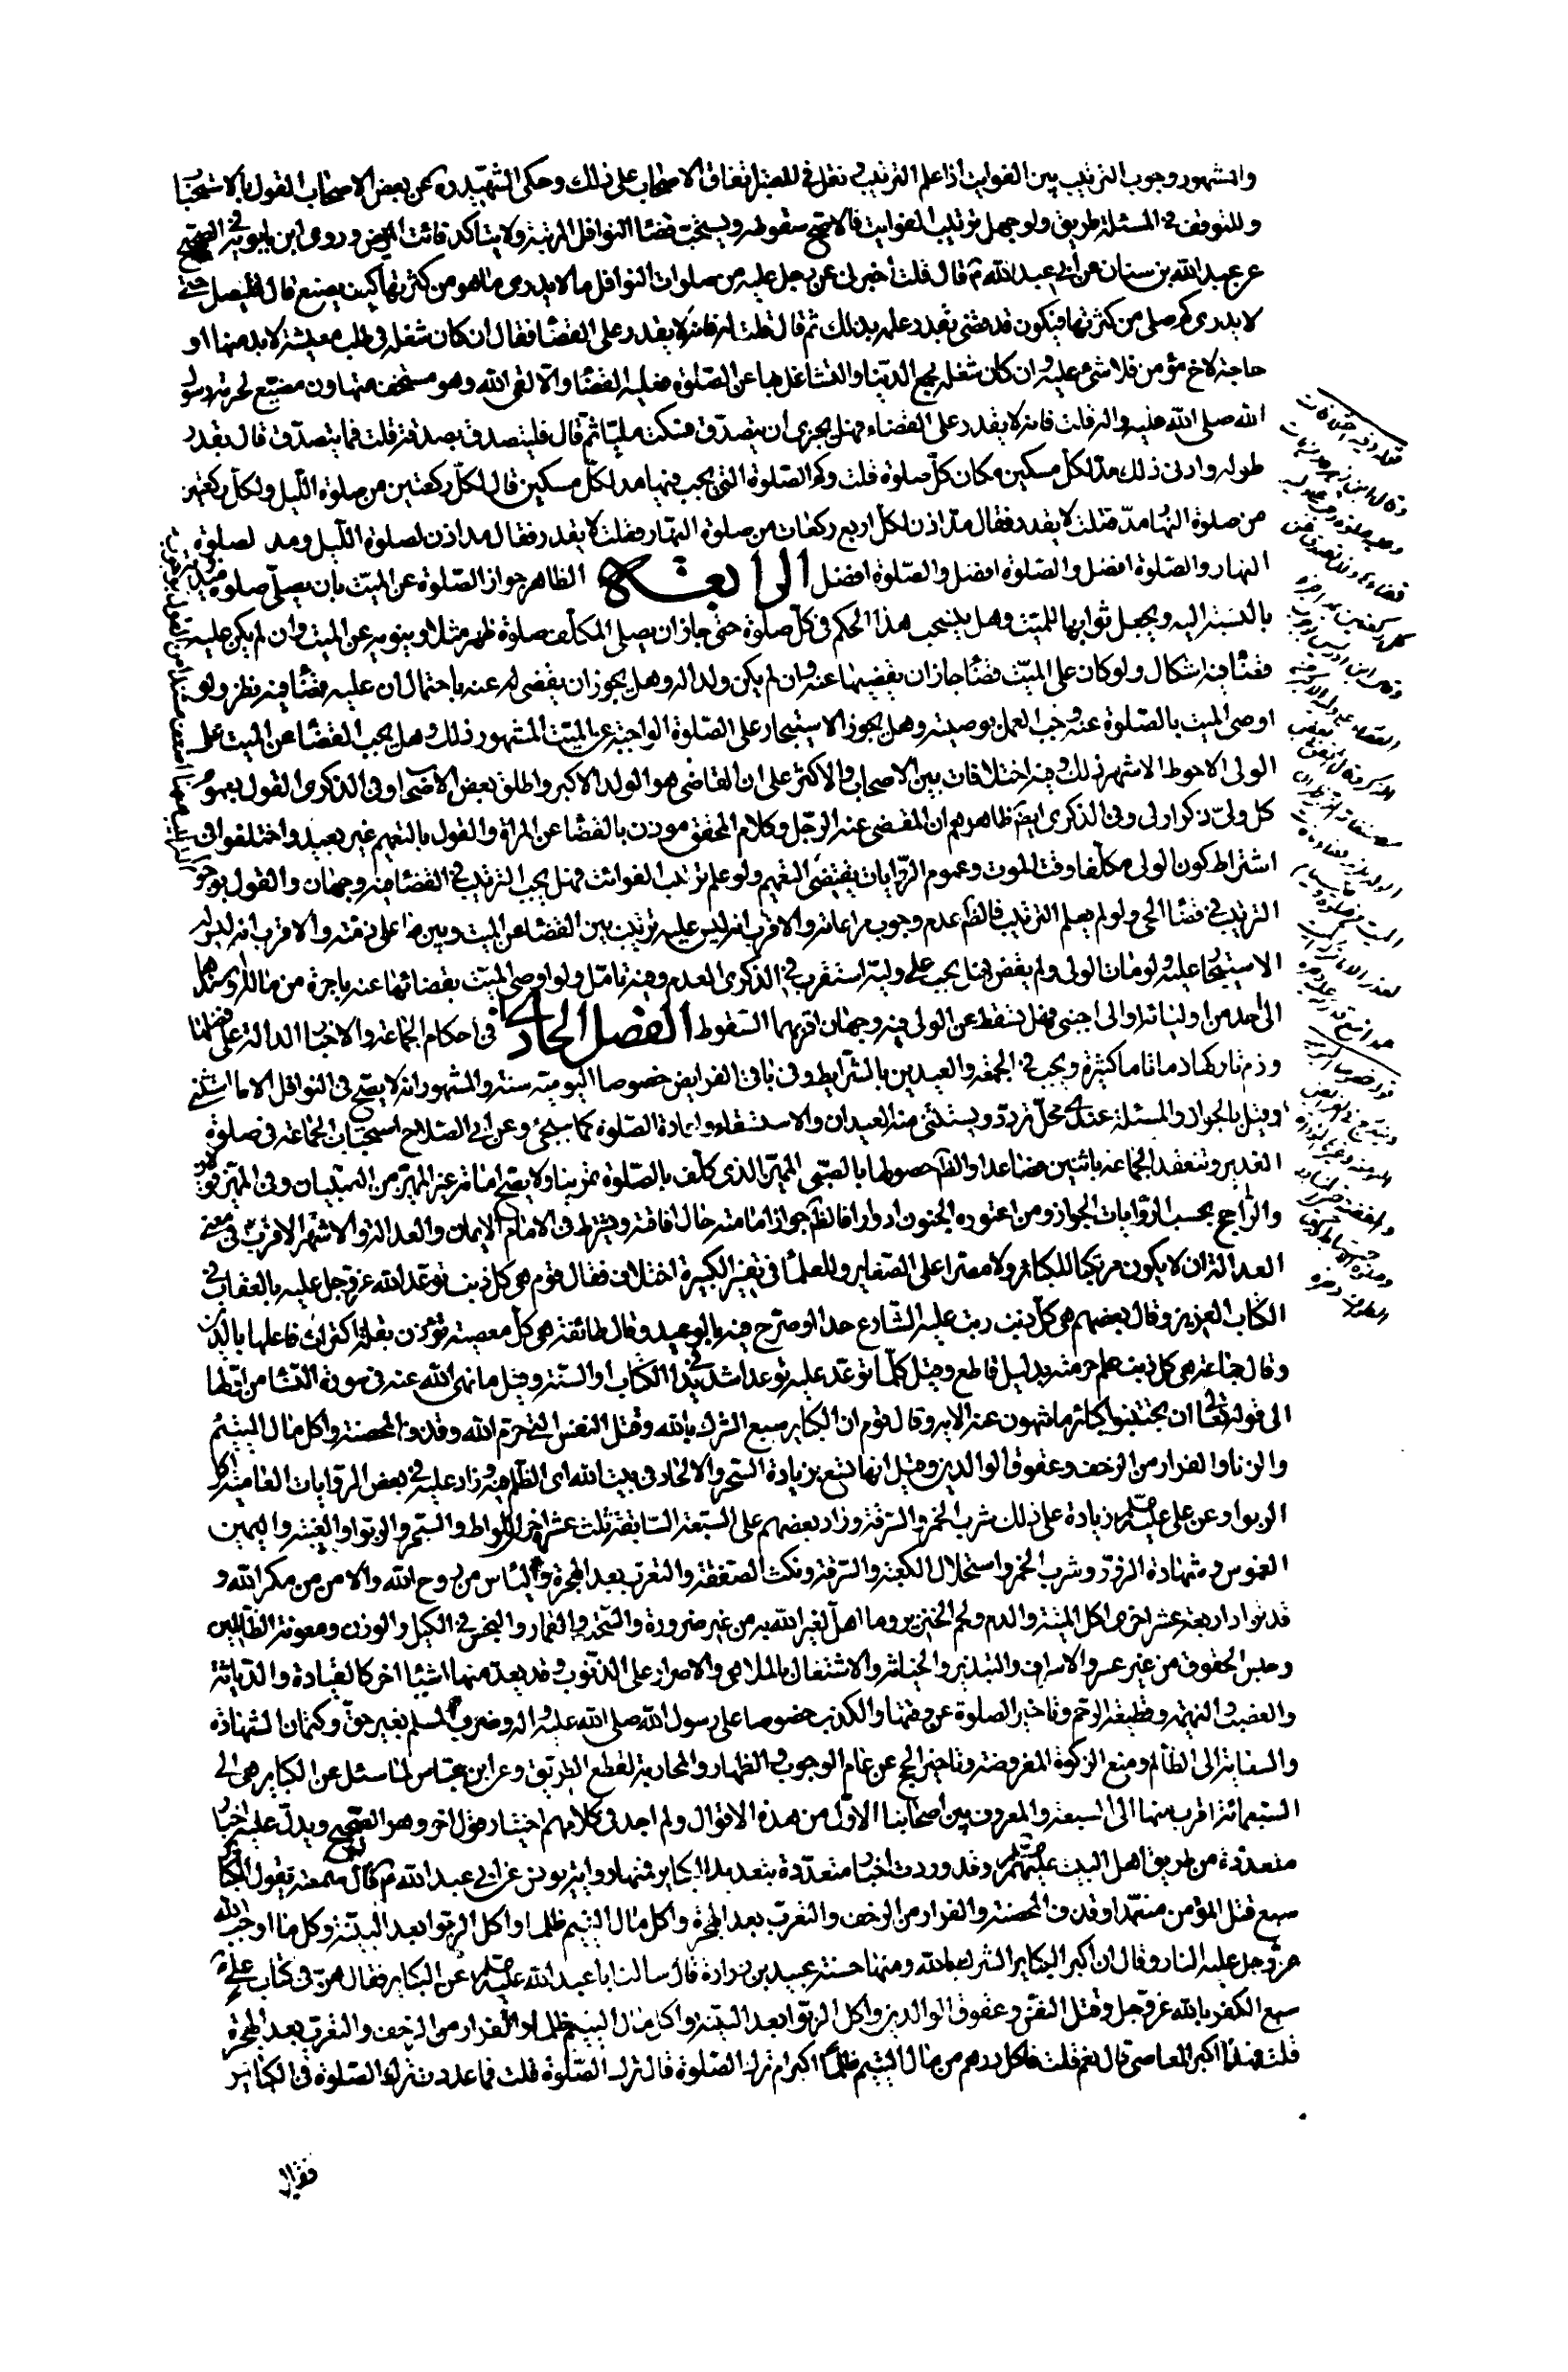 والمشهور وجوب الترتيب بين الفوايت اذا علم الترتيب ونقل في المعتبر اتفاق الاصحاب على ذلك وحكى الشهيد ره عن بعض الاصحاب القول بالاستحباب
وللتوقف في المسئلة طريق ولو جهل ترتيب الفوايت فالاصح سقوطه ويستحب قضاء النوافل المرتبة ولا يتاكد فائت المريض وروى ابن بابويه في الصحيح
عن عبد الله بن سنان عن ابي عبد الله ع قال قلت اخبرني عن رجل عليه من صلوات النوافل ما لا يدري ما هو من كثرتها كيف يصنع قال فليصل حتى
لا يدري كم صلى من كثرتها فيكون قد قضى بقدر علمه بذلك ثم قال قلت له فانه لا يقدر على القضاء فقال ان كان شغله في طلب معيشة لا بد منها او
حاجة لاخ مؤمن فلا شيء عليه وان كان شغله لجمع الدنيا والتشاغل بها عن الصلوة فعليه القضاء والا لقى الله وهو مستخف متهاون مضيع لحرمة رسول
الله صلى الله عليه واله قلت فانه لا يقدر على القضاء فهل يجزي ان يتصدق فسكت مليا ثم قال فليتصدق بصدقة قلت فما يتصدق قال بقدر
طوله وادنى ذلك مد لكل مسكين مكان كل صلوة قلت وكم الصلوة التي يجب فيها مد لكل مسكين قال لكل ركعتين من صلوة الليل ولكل ركعتين
من صلوة النهار مد فقلت لا يقدر فقال مد اذن لكل اربع ركعات من صلوة النهار فقلت لا يقدر فقال مد اذن لصلوة الليل ومد لصلوة
النهار والصلوة افضل والصلوة افضل والصلوة افضل الرابعة الظاهر جواز الصلوة عن الميت بان يصلى صلوة
بالنسبة اليه ويجعل ثوابها للميت وهل ينسحب هذا الحكم في كل صلوة حتى جاز ان يصلي المكلف صلوة ظهر مثلا وينويه عن الميت وان لم يكن عليه
قضاء فيه اشكال ولو كان على الميت قضاء جاز ان يقضيها عنه وان لم يكن ولدا له وهل يجوز ان يقضى له عنه باحتمال ان عليه قضاء فيه نظر ولو
اوصى الميت بالصلوة عنه وجب العمل بوصيته وهل يجوز الاستيجار على الصلوة الواجبة عن الميت المشهور ذلك وهل يجب القضاء عن الميت على
الولى الاحوط الاشهر ذلك وفيه اختلافات بين الاصحاب والاكثر على ان القاضي هو الولد الاكبر واطلق بعض الاصحاب وفي الذكرى القول بعموم
كل ولي ذكر اولى وفي الذكرى ايضا ظاهرهم ان المقضى عنه الرجل وكلام المحقق موذن بالقضاء عن المراة والقول بالتعميم غير بعيد واختلفوا في
اشتراط كون الولى مكلفا وقت الموت وعموم الروايات يقتضى التعميم ولو علم ترتيب الفوائت فهل يجب الترتيب في القضاء فيه وجهان والقول بوجوب
الترتيب في قضاء الحي ولو لم يعلم الترتيب فالظ عدم وجوب مراعاته والاقرب انه ليس عليه ترتيب بين القضاء عن الميت وبين ما على ذمته والاقرب انه ليس له
الاستيجار عليه ولو مات الولى ولم يقض هل يجب على وليه استقرب في الذكرى العدم وفيه تامل ولو اوصى الميت بقضائها عنه باجرة من ماله او
الى احد من اوليائه او الى اجنبي فهل يسقط عن الولى فيه وجهان اقربهما السقوط الفصل الحادي في احكام الجماعة والاخبار الدالة على فضلها
وذم تاركها دائما كثيرة ويجب في الجمعة والعيدين بالشرايط وفي باقي الفرايض خصوصا اليومية سنة والمشهور انه لا يصح في النوافل الا ما استثنى
وقيل بالجواز والمسئلة عندي محل تردد ويستثنى منه العيدان والاستسقاء واعادة الصلوة كما سيجئ وعن ابي الصلاح استحباب الجماعة في صلوة
الغدير وتنعقد الجماعة باثنين فصاعدا والظ حصولها بالصبى المميز الذي كلف بالصلوة تمرينا ولا يصح امامة غير المميز من الصبيان وفي المميز قولان
والراجح بحسب الروايات الجواز ومن اعتوره الجنون ادوارا فالظ جواز امامته حال افاقته ويشترط في الامام الايمان والعدالة والاشهر الاقرب في معنى
العدالة ان لا يكون مرتكبا للكبائر ولا مصرا على الصغاير وللعلماء في تفسير الكبيرة اختلاف فقال قوم هي كل ذنب توعد الله عز وجل عليه بالعقاب في
الكتاب العزيز وقال بعضهم هي كل ذنب رتب عليه الشارع حدا او صرح فيه بالوعيد وقال طائفة هي كل معصية توذن بقلة اكتراث فاعلها بالدين
وقال جماعة هي كل ذنب علم حرمته بدليل قاطع وقيل كلما توعد عليه توعدا شديدا في الكتاب او السنة وقيل ما نهى الله عنه في سورة النساء من اولها
الى قوله تعالى ان تجتنبوا كبائر ما تنهون عنه الاية وقال قوم ان الكباير سبع الشرك بالله وقتل النفس التي حرم الله وقذف المحصنة واكل مال اليتيم
والزنا والفرار من الزحف وعقوق الوالدين وقيل انها تسع بزيادة السحر والالحاد في بيت الله اي الظلم فيه وزاد عليه في بعض الروايات العامية اكل
الربوا وعن علي عليه السلم زيادة على ذلك شرب الخمر والسرقة وزاد بعضهم على السبعة السابقة ثلث عشرة اخرى اللواط والسحر والربوا والغيبة واليمين
الغموس وشهادة الزور وشرب الخمر واستحلال الكعبة والسرقة ونكث الصفقة والتعرب بعد الهجرة والياس من روح الله والامن من مكر الله و
قد تزاد اربعة عشر اخرى اكل الميتة والدم ولحم الخنزير وما اهل لغير الله به من غير ضرورة والسحت والقمار والبخس في الكيل والوزن ومعونة الظالمين
وحبس الحقوق من غير عسر والاسراف والتبذير والخيانة والاشتغال بالملاهي والاصرار على الذنوب وقد يعد منها اشياء اخر كالقيادة والدياثة
والغصب والنميمة وقطيعة الرحم وتاخير الصلوة عن وقتها والكذب خصوصا على رسول الله صلى الله عليه واله وضرب المسلم بغير حق وكتمان الشهادة
والسعاية الى الظالم ومنع الزكوة المفروضة وتاخير الحج عن عام الوجوب والظهار والمحاربة لقطع الطريق وعن ابن عباس لما سئل عن الكباير هي الى
السبعمائة اقرب منها الى السبعة والمعروف بين اصحابنا الاول من هذه الاقوال ولم اجد في كلامهم اختيار قول اخر وهو الصحيح ويدل عليه اخبار
متعددة من طريق اهل البيت عليهم السلم وقد وردت اخبار متعددة بتعديد الكباير فمنها رواية يونس عن ابي عبد الله ع قال سمعته يقول الكبائر
سبع قتل المؤمن متعمدا وقذف المحصنة والفرار من الزحف والتعرب بعد الهجرة واكل مال اليتيم ظلما واكل الربوا بعد البينة وكل ما اوجب الله
عز وجل عليه النار وقال ان اكبر الكباير الشرك بالله ومنها حسنة عبيد بن زرارة قال سالت ابا عبد الله عليه السلم عن الكباير فقال هن في كتاب علي ع
سبع الكفر بالله عز وجل وقتل النفس وعقوق الوالدين واكل الربوا بعد البينة واكل مال اليتيم ظلما والفرار من الزحف والتعرب بعد الهجرة
قلت فهذا اكبر المعاصي قال نعم قلت فاكل درهم من مال اليتيم ظلما اكبر ام ترك الصلوة قال ترك الصلوة قلت فما عددت ترك الصلوة في الكبائر
فقال